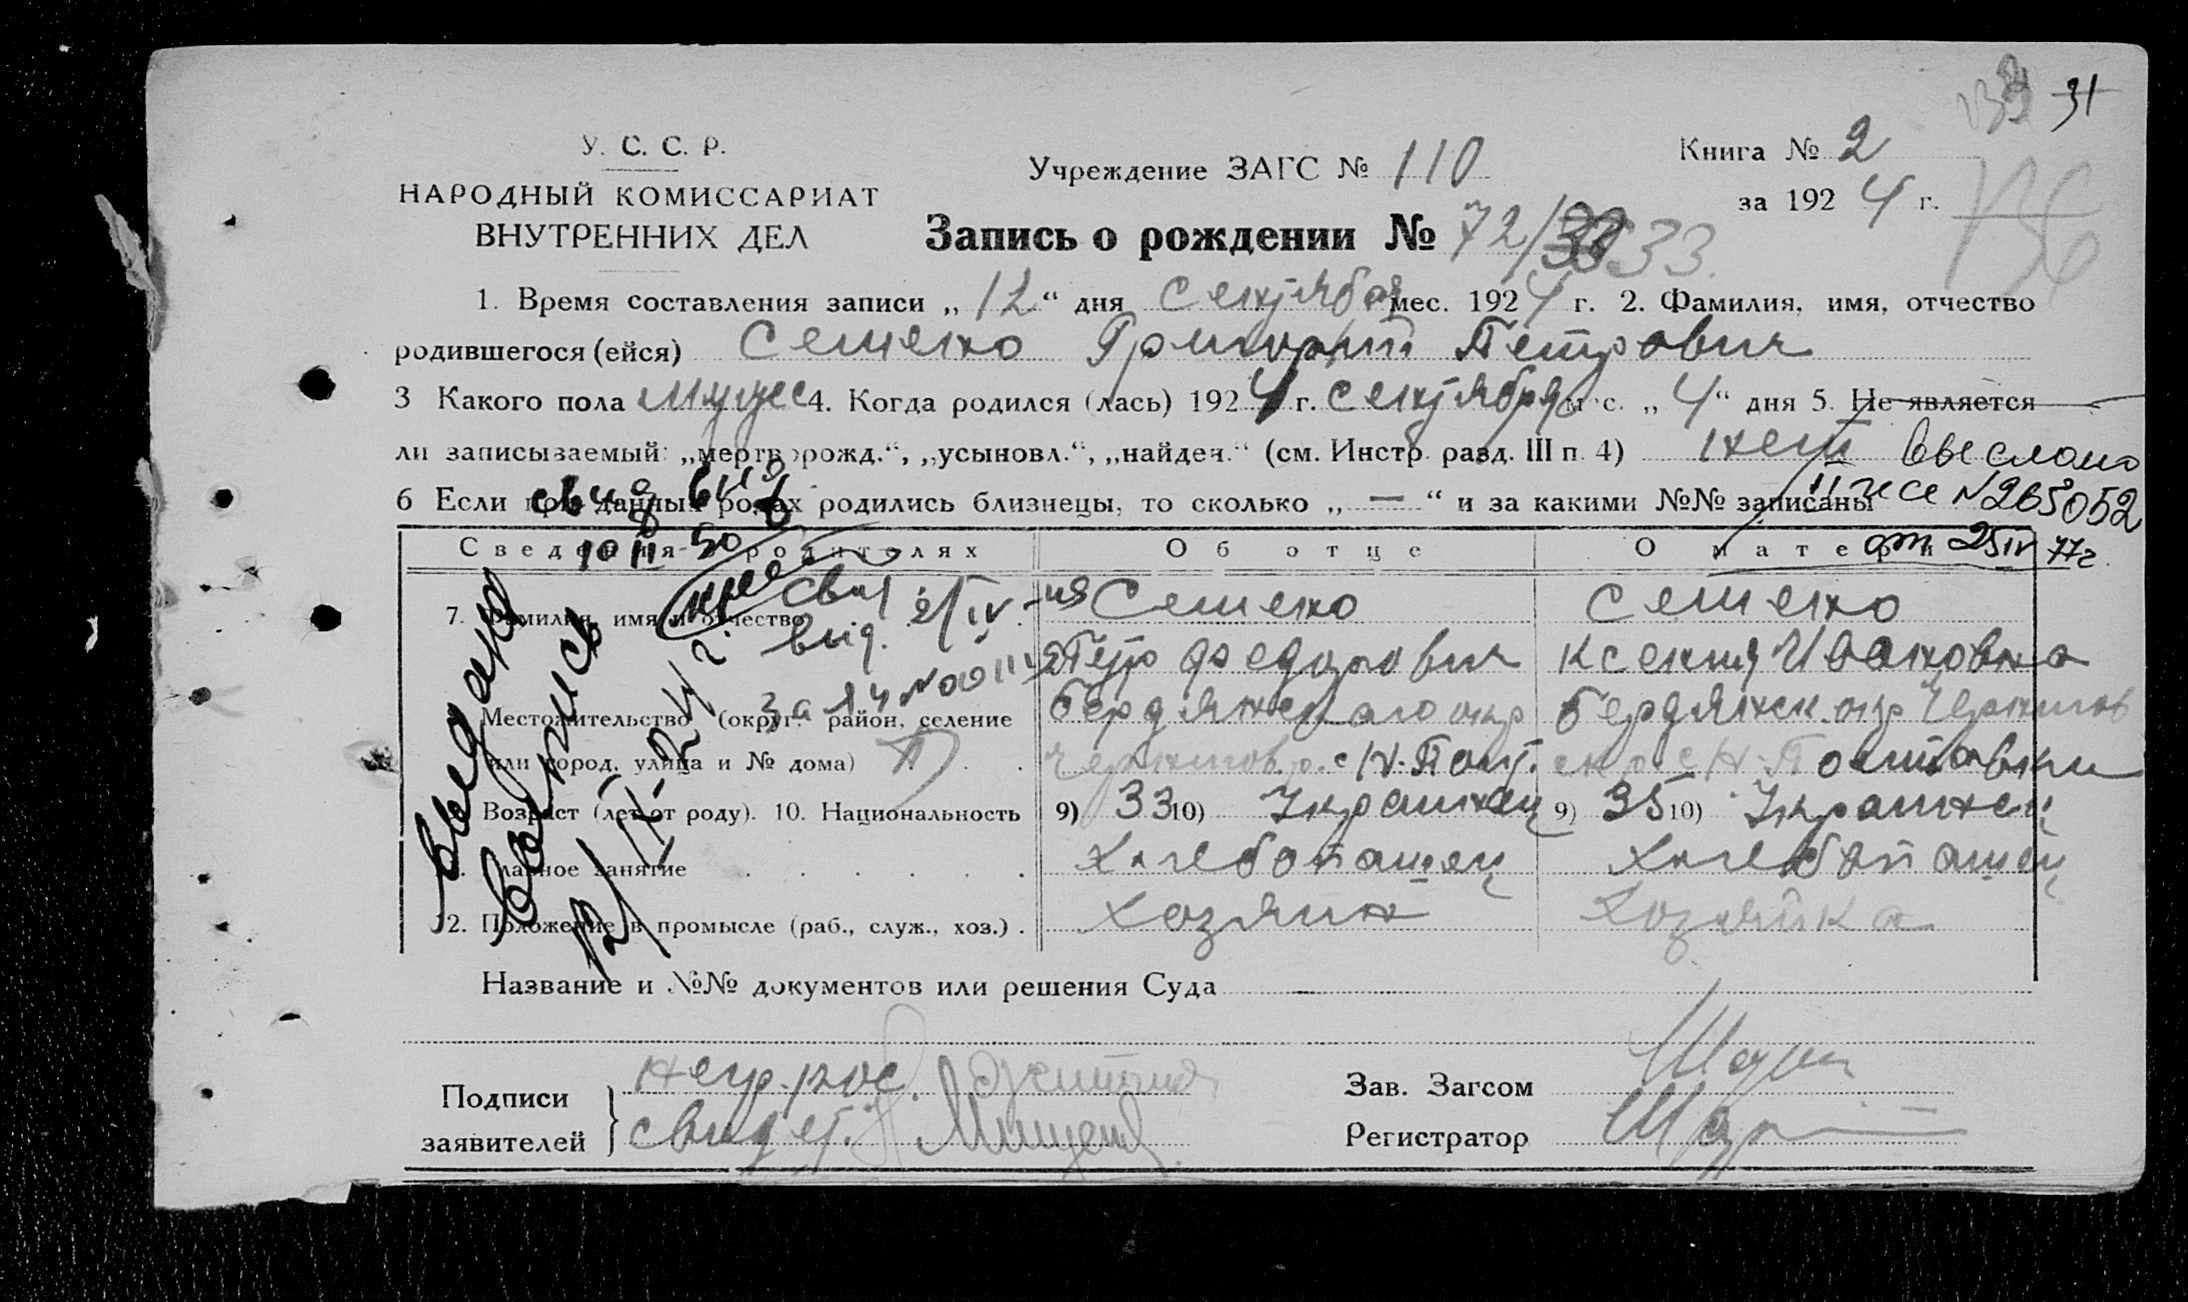 31
У. С. С. Р.
НАРОДНЫЙ КОМИССАРИАТ
ВНУТРЕННИХ ДЕЛ
Учреждение ЗАГС № 110
Книга № 2
за 1924 г.
136
Запись о рождении № 72/ 33.
1. Время составления записи „12“ дня Сентября мес. 1924 г. 2. Фамилия, имя, отчество
родившегося (ейся) Семенко Григорий Петрович
3 Какого пола мужес 4. Когда родился (лась) 1924 г. Сентября м с. „4“ дня 5. Не является
ли записываемый: „мертворожд.“, „усыновл.“, „найден.“ (см. Инстр. разд. III п. 4) нет
6 Если при данных родах родились близнецы, то сколько „—“ и за какими №№ записаны
Выслано
№ 265052
от 25 IV 77г.
10 II 50
Сведения о родителях
Об отце
О матери
7. Фамилия, имя и отчество
Семенко
Семенко
Петр Федорович
Ксения Ивановна
Местожительство (округ, район, селение
Бердянского окр
Бердянск. окр Чернигов
или город, улица и № дома)
Чернигов. р. с Н. Полт.
ск р. с Н-Полтавки
Возраст (лет от роду). 10. Национальность
9) 33 10) Украинец
9) 35 10) Украинец
Главное занятие
Хлебопашец
Хлебопашец
12. Положение в промысле (раб., служ., хоз.)
Хозяин
Хозяйка
Выдано
выпись
Название и №№ документов или решения Суда —
Подписи
заявителей
негр. рос.
свидет. Мищенко
Зав. Загсом
Регистратор